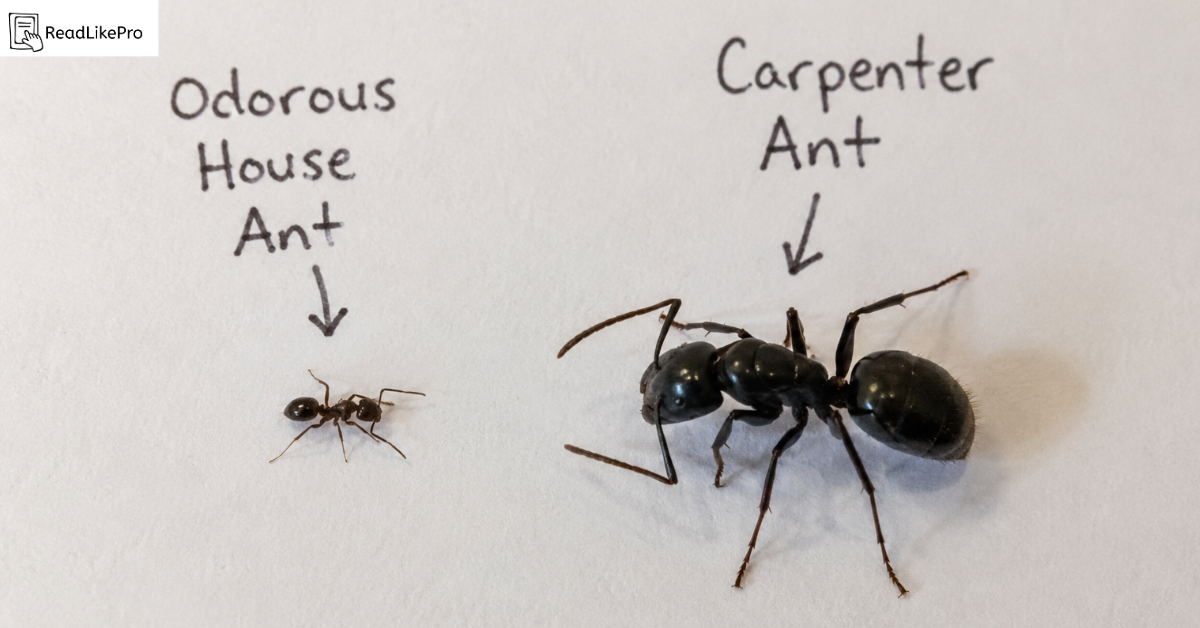 ReadLikePro
Odorous
House
Ant
Carpenter
Ant